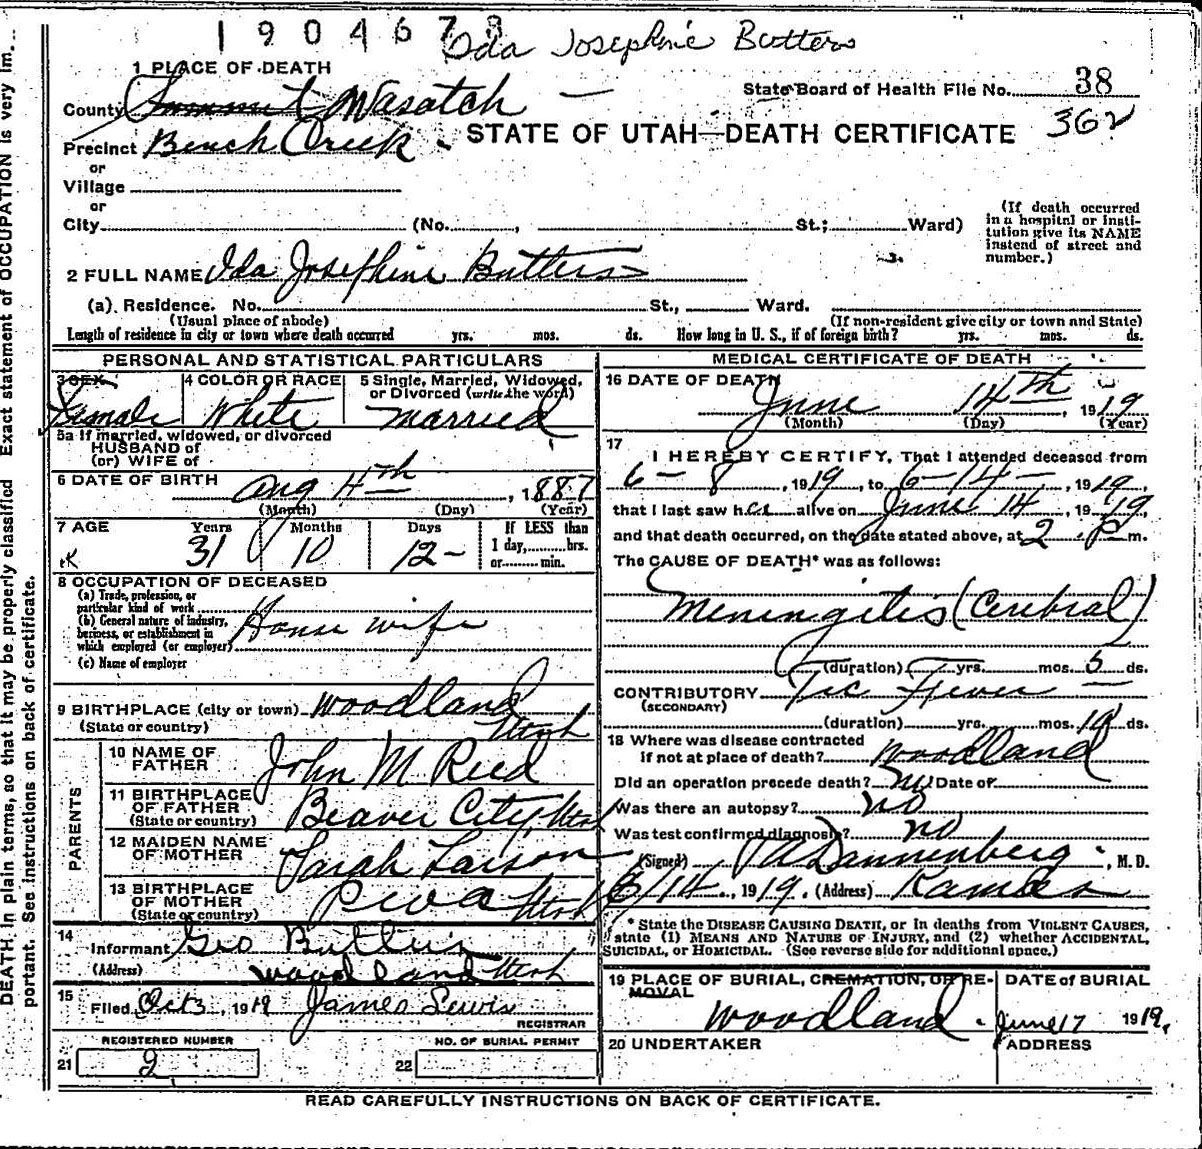 1904678
Ida Josephine Butters
1 PLACE OF DEATH
State Board of Health File No. 38
County Summit Wasatch
362
STATE OF UTAH—DEATH CERTIFICATE
Precinct Bench Creek
or
Village
or
City (No. , St.; Ward)
(If death occurred in a hospital or insti-
tution give its NAME
instead of street and
number.)
2 FULL NAME Ida Josephine Butters
(a). Residence. No. St., Ward.
(Usual place of abode) (If non-resident give city or town and State)
Length of residence in city or town where death occurred yrs. mos. ds. How long in U. S., if of foreign birth? yrs. mos. ds.
PERSONAL AND STATISTICAL PARTICULARS
3 SEX 4 COLOR OR RACE 5 Single, Married, Widowed,
or Divorced (write the word)
Female White Married
5a If married, widowed, or divorced
HUSBAND of
(or) WIFE of
6 DATE OF BIRTH Aug 4th, 1887
(Month) (Day) (Year)
7 AGE Years Months Days If LESS than
31 10 12 1 day, hrs.
or min.
8 OCCUPATION OF DECEASED
(a) Trade, profession, or
particular kind of work
(b) General nature of industry,
business, or establishment in
which employed (or employer)
House wife
(c) Name of employer
9 BIRTHPLACE (city or town) Woodland
(State or country) Utah
PARENTS
10 NAME OF
FATHER John M Reed
11 BIRTHPLACE
OF FATHER Beaver City, Utah
(State or country)
12 MAIDEN NAME
OF MOTHER Sarah Larson
13 BIRTHPLACE
OF MOTHER Utah
(State or country)
14
Informant Geo Butters
(Address) Woodland Utah
15
Filed Oct 3, 1919 James Lewis
REGISTRAR
REGISTERED NUMBER NO. OF BURIAL PERMIT
21 2 22
MEDICAL CERTIFICATE OF DEATH
16 DATE OF DEATH
June 14th, 1919
(Month) (Day) (Year)
17
I HEREBY CERTIFY, That I attended deceased from
6-8, 1919, to 6-14-, 1919,
that I last saw her alive on June 14, 1919
and that death occurred, on the date stated above, at 2 P m.
The CAUSE OF DEATH* was as follows:
Meningitis (Cerebral)
(duration) yrs. mos. 5 ds.
CONTRIBUTORY Tic Fever
(SECONDARY)
(duration) yrs. mos. 10 ds.
18 Where was disease contracted
if not at place of death? Woodland
Did an operation precede death? no Date of
Was there an autopsy? no
Was test confirmed diagnosis? no
(Signed) Dannenberg, M. D.
6/14, 1919. (Address) Kamas
* State the DISEASE CAUSING DEATH, or in deaths from VIOLENT CAUSES,
state (1) MEANS AND NATURE OF INJURY, and (2) whether ACCIDENTAL,
SUICIDAL, or HOMICIDAL. (See reverse side for additional space.)
19 PLACE OF BURIAL, CREMATION, OR RE- DATE of BURIAL
MOVAL
Woodland June 17 1919.
20 UNDERTAKER ADDRESS
READ CAREFULLY INSTRUCTIONS ON BACK OF CERTIFICATE.
DEATH, in plain terms, so that it may be properly classified Exact statement of OCCUPATION is very im.
portant. See instructions on back of certificate.